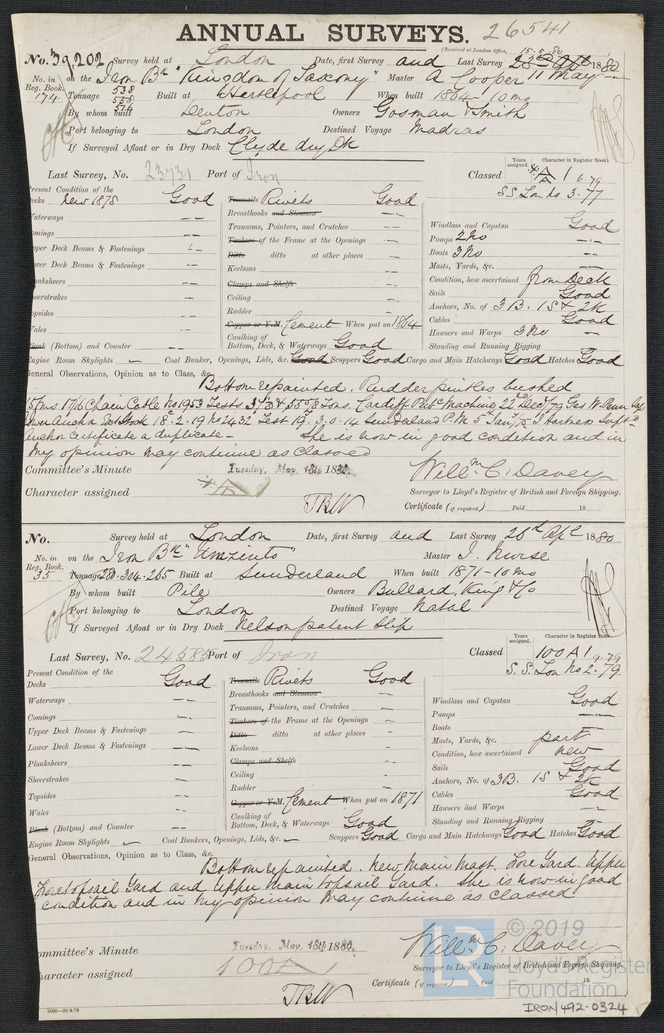 ANNUAL SURVEYS. 26541
(Received at London Office, 15-5-80
No. 39,202 Survey held at London Date, first Survey and Last Survey 11 May 1880
No. in Reg. Book. on the Iron Bk "Kingdom of Saxony" Master A Cooper
174 Tonnage 538 558 574 Built at Hartlepool When built 1864-10mo
By whom built Denton Owners Gosman & Smith
Port belonging to London Destined Voyage Madras
If Surveyed Afloat or in Dry Dock Clyde dry Dk
Last Survey, No. 23731 Port of Iron Classed A 1 6.79
Years assigned. Character in Register Book.
S.S. Lon No 3-77
Present Condition of the
Decks New 1878 Good
Waterways -- 
Comings --
Upper Deck Beams & Fastenings --
Lower Deck Beams & Fastenings --
Planksheers --
Sheerstrakes --
Topsides --
Wales --
Plank (Bottom) and Counter --
Treenails Rivets Good
Breasthooks and Stemson --
Transoms, Pointers, and Crutches --
Timbers of the Frame at the Openings --
Ditto ditto at other places --
Keelsons --
Clamps and Shelfs
Ceiling --
Rudder --
Copper or Y.M. Cement When put on 1864
Caulking of Bottom, Deck, & Waterways Good
Windlass and Capstan Good
Pumps 2 No --
Boats 3 No --
Masts, Yards, &c. --
Condition, how ascertained from Deck
Sails Good
Anchors, No. of 3 B. 1 S & 2 K
Cables Good
Hawsers and Warps 3 No --
Standing and Running Rigging
Engine Room Skylights -- Coal Bunker, Openings, Lids, &c. Good Scuppers Good Cargo and Main Hatchways Good Hatches Good
General Observations, Opinion as to Class, &c.
Bottom repainted. Rudder pintles bushed
15 fms 1 7/16 Chain Cable No 1953 Tests Tons. Cardiff Pubc Machine 22nd Dec/79
Anchor Certificate a duplicate - She is now in good condition and in
my opinion may continue as Classed
Committee's Minute Tuesday, May, 18th 1880.
Character assigned
Willm C. Davey
Surveyor to Lloyd's Register of British and Foreign Shipping.
Certificate (if required) Paid 18
No. Survey held at London Date, first Survey and Last Survey 26th Apl 1880
No. in Reg. Book. on the Iron Bk "Umzinto" Master J. Nurse
35 Tonnage 304-265 Built at Sunderland When built 1871-10 mo
By whom built Pile Owners Bullard, King & Co
Port belonging to London Destined Voyage Natal
If Surveyed Afloat or in Dry Dock Nelson patent Slip
Last Survey, No. 24585 Port of Iron Classed 100 A 1 9-79
Years assigned. Character in Register Book.
S.S. Lon No 2-79
Present Condition of the
Decks Good
Waterways --
Comings --
Upper Deck Beams & Fastenings --
Lower Deck Beams & Fastenings --
Planksheers --
Sheerstrakes --
Topsides --
Wales --
Plank (Bottom) and Counter --
Treenails Rivets Good
Breasthooks and Stemson --
Transoms, Pointers, and Crutches --
Timbers of the Frame at the Openings --
Ditto ditto at other places --
Keelsons --
Clamps and Shelfs
Ceiling --
Rudder --
Copper or Y.M. Cement When put on 1871
Caulking of Bottom, Deck, & Waterways Good
Windlass and Capstan Good
Pumps --
Boats --
Masts, Yards, &c. part
Condition, how ascertained new
Sails Good
Anchors, No. of 3 B. 1 S & 2 K
Cables Good
Hawsers and Warps --
Standing and Running Rigging
Engine Room Skylights -- Coal Bunkers, Openings, Lids, &c. -- Scuppers Good Cargo and Main Hatchways Good Hatches Good
General Observations, Opinion as to Class, &c.
Bottom repainted. New Main Mast. Fore Yard. Upper
Foretopsail Yard and Upper Main topsail Yard. She is now in good
condition and in my opinion may continue as classed
Committee's Minute Tuesday, May, 18th 1880.
Character assigned 100A
Willm C. Davey
Surveyor to Lloyd's Register of British and Foreign Shipping.
Certificate (if required) Paid 18
LR © 2019
Lloyd's Register
Foundation
IRON/492-0324